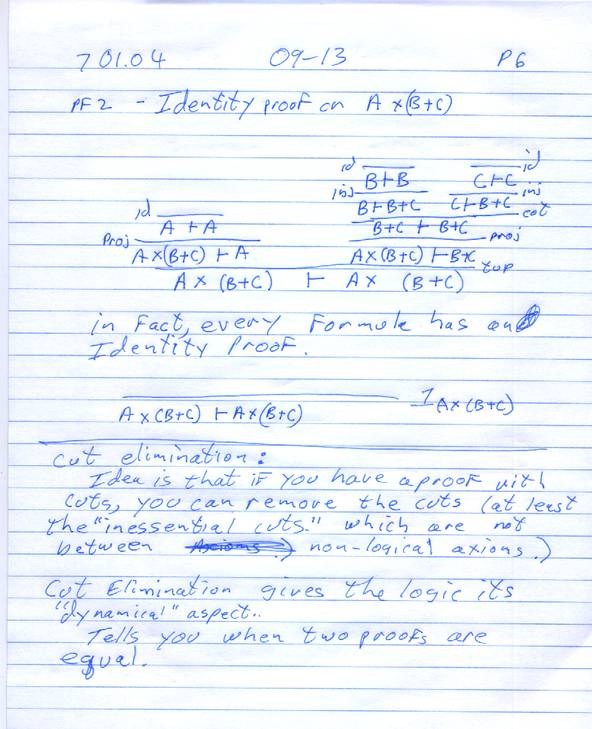 701.04 09-13 P6
PF2 - Identity proof on A x (B+C)
id id
B ⊢ B C ⊢ C
inj inj
B ⊢ B+C C ⊢ B+C
id cot
A ⊢ A B+C ⊢ B+C
Proj proj
A x (B+C) ⊢ A A x (B+C) ⊢ B+C
tup
A x (B+C) ⊢ A x (B+C)
in Fact, every Formula has an
Identity Proof.
A x (B+C) ⊢ A x (B+C) 1 A x (B+C)
Cut elimination:
Idea is that if you have a proof with
cuts, you can remove the cuts (at least
the "inessential cuts." which are not
between Axioms.) non-logical axioms.)
Cut Elimination gives the logic its
"dynamical" aspect..
Tells you when two proofs are
equal.